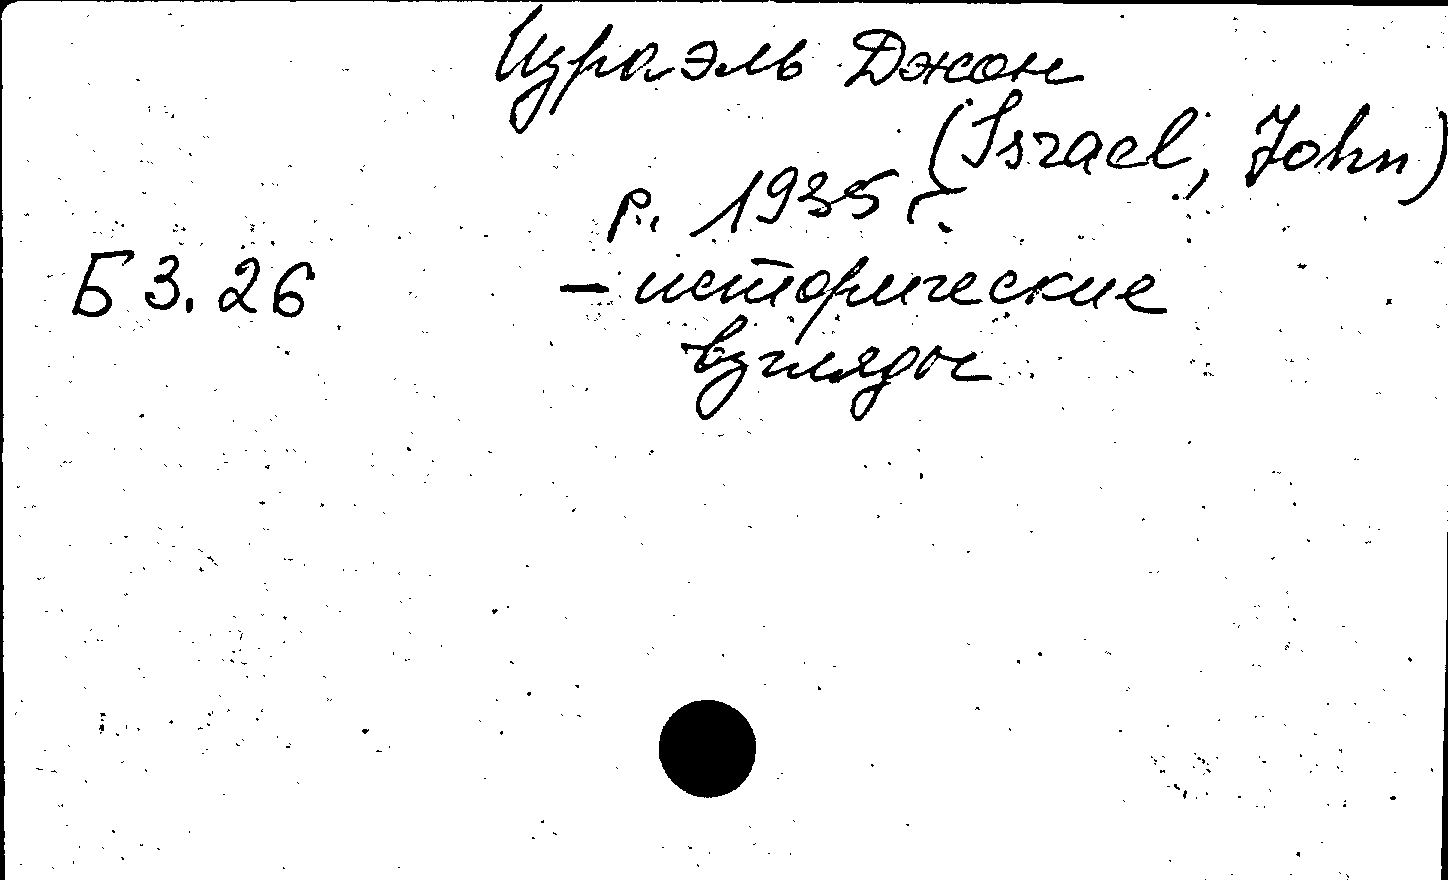 Израэль Джон
(Israel, John)
р. 1935 г.
Б 3.26 – исторические
взгляды